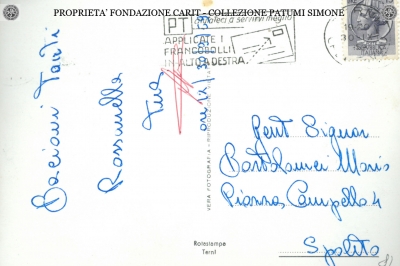 PROPRIETA' FONDAZIONE CARIT - COLLEZIONE PATUMI SIMONE
PT
a servirvi meglio
APPLICATE I
FRANCOBOLLI
IN ALTO A DESTRA
Bacioni Tanti
Rossinella
Tua
VERA FOTOGRAFIA - RIPRODUZIONE
Gent Signor
Bartolomei Mario
Piazza Campello 4
Spoleto
Rotostampa
Terni